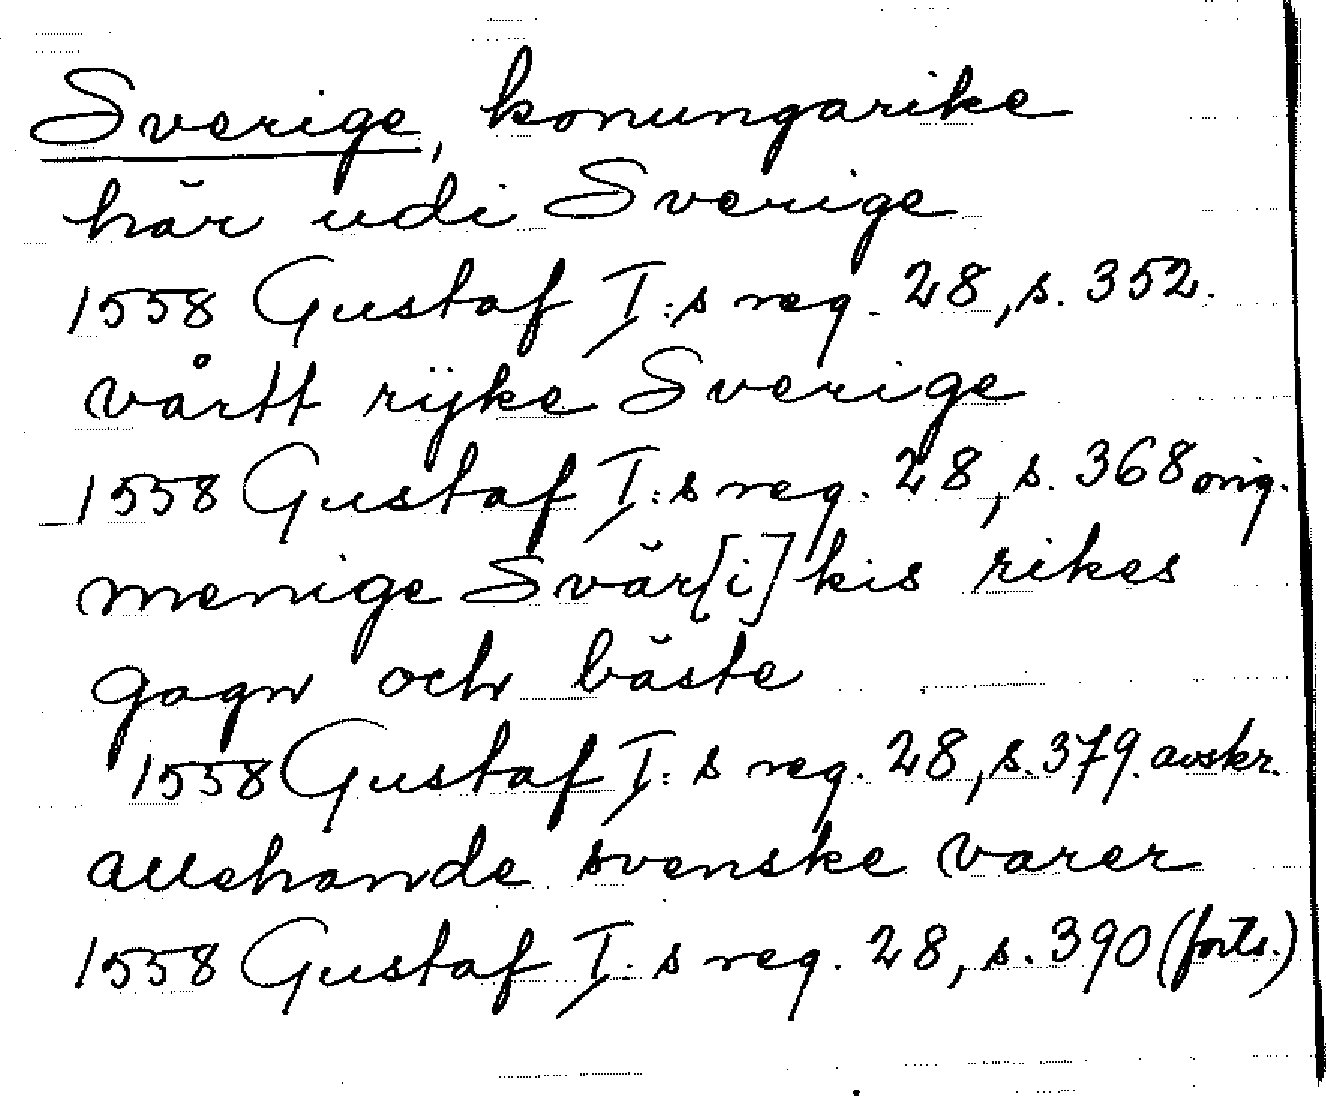 Sverige, konungarike
här udi Sverige
1558 Gustaf I:s reg. 28, s. 352.
vårtt rijke Sverige
1558 Gustaf I:s reg. 28, s. 368 orig.
menige Svär[i]kis rikes
gagn och bäste
1558 Gustaf I:s reg. 28, s. 379. avskr.
allehande svenske varer
1558 Gustaf I. s reg. 28, s. 390 (forts.)